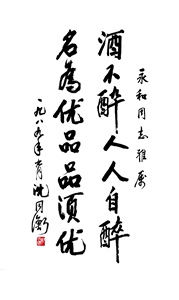 永和同志雅属
酒不醉人人自醉
名为优品品须优
一九八九年十月沈同衡